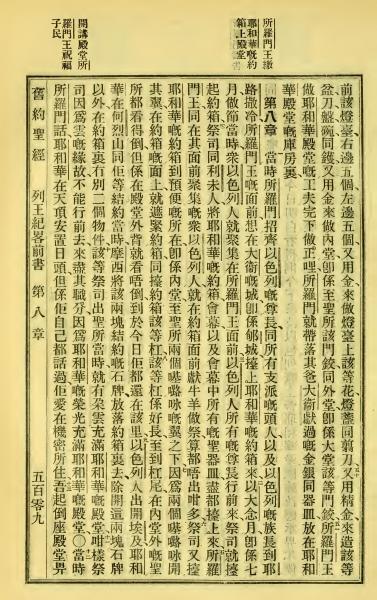 所羅門王
耶和華嘅約
箱上殿堂
開講殿堂所
羅門王祝福
子民
前該燈臺右邊五個左邊五個又用金來做燈臺上該等花燈盞同剪刀又用精金來造該等
盆刀盤碗同鑊又用金來做內堂卽係至聖所該門鉸同外堂卽係大堂該等門鉸所羅門王
做耶和華殿堂嘅工夫完下做正哩所羅門就帶落其爸大衛獻過嘅金銀同器皿放在耶和
華殿堂嘅庫房裏
第八章 當時所羅門招齊以色列嘅尊長同所有支派嘅頭人以及以色列嘅族長到耶
路撒冷所羅門王嘅面前想在大衛嘅城卽係郇城擡上耶和華嘅約箱來以大念月卽係七
月做節當時衆以色列人就聚集在所羅門王面前以色列人所有嘅尊長行前來祭司就擡
起約箱祭司同利未人將耶和華嘅約箱會幕以及會幕中所有嘅聖器皿盡都擡上來所羅
門王同在其面前聚集嘅衆以色列人就在約箱面前獻牛羊做祭算都唔出咁多祭司又擡
耶和華嘅約箱到預便嘅所在卽係內堂至聖所兩個嘰嚕咏嘅翼之下因爲兩個嘰嚕咏開
其翼在約箱嘅面上就遮聚約箱同擡約箱該等杠該等杠係好長至到杠尾在內堂外嘅聖
所都看得倒但係在殿堂外背就看唔倒到於今日佢都還在該里以色列人出開埃及耶和
華在何烈山同佢等結約當時摩西將該兩塊結約嘅石牌放落約箱裏去除開這兩塊石牌
以外在約箱裏冇別二個物件該等祭司出聖所當時就有朵雲充滿耶和華嘅殿堂咁樣祭
司因爲雲嘅緣故不能行前去來盡其職分因爲耶和華嘅榮光充滿耶和華嘅殿堂〇當時
所羅門話耶和華在天項安置日頭但係佢自己都話過佢愛在機密所住吾起倒座殿堂畀
舊約聖經 列王紀畧前書 第八章 五百零九